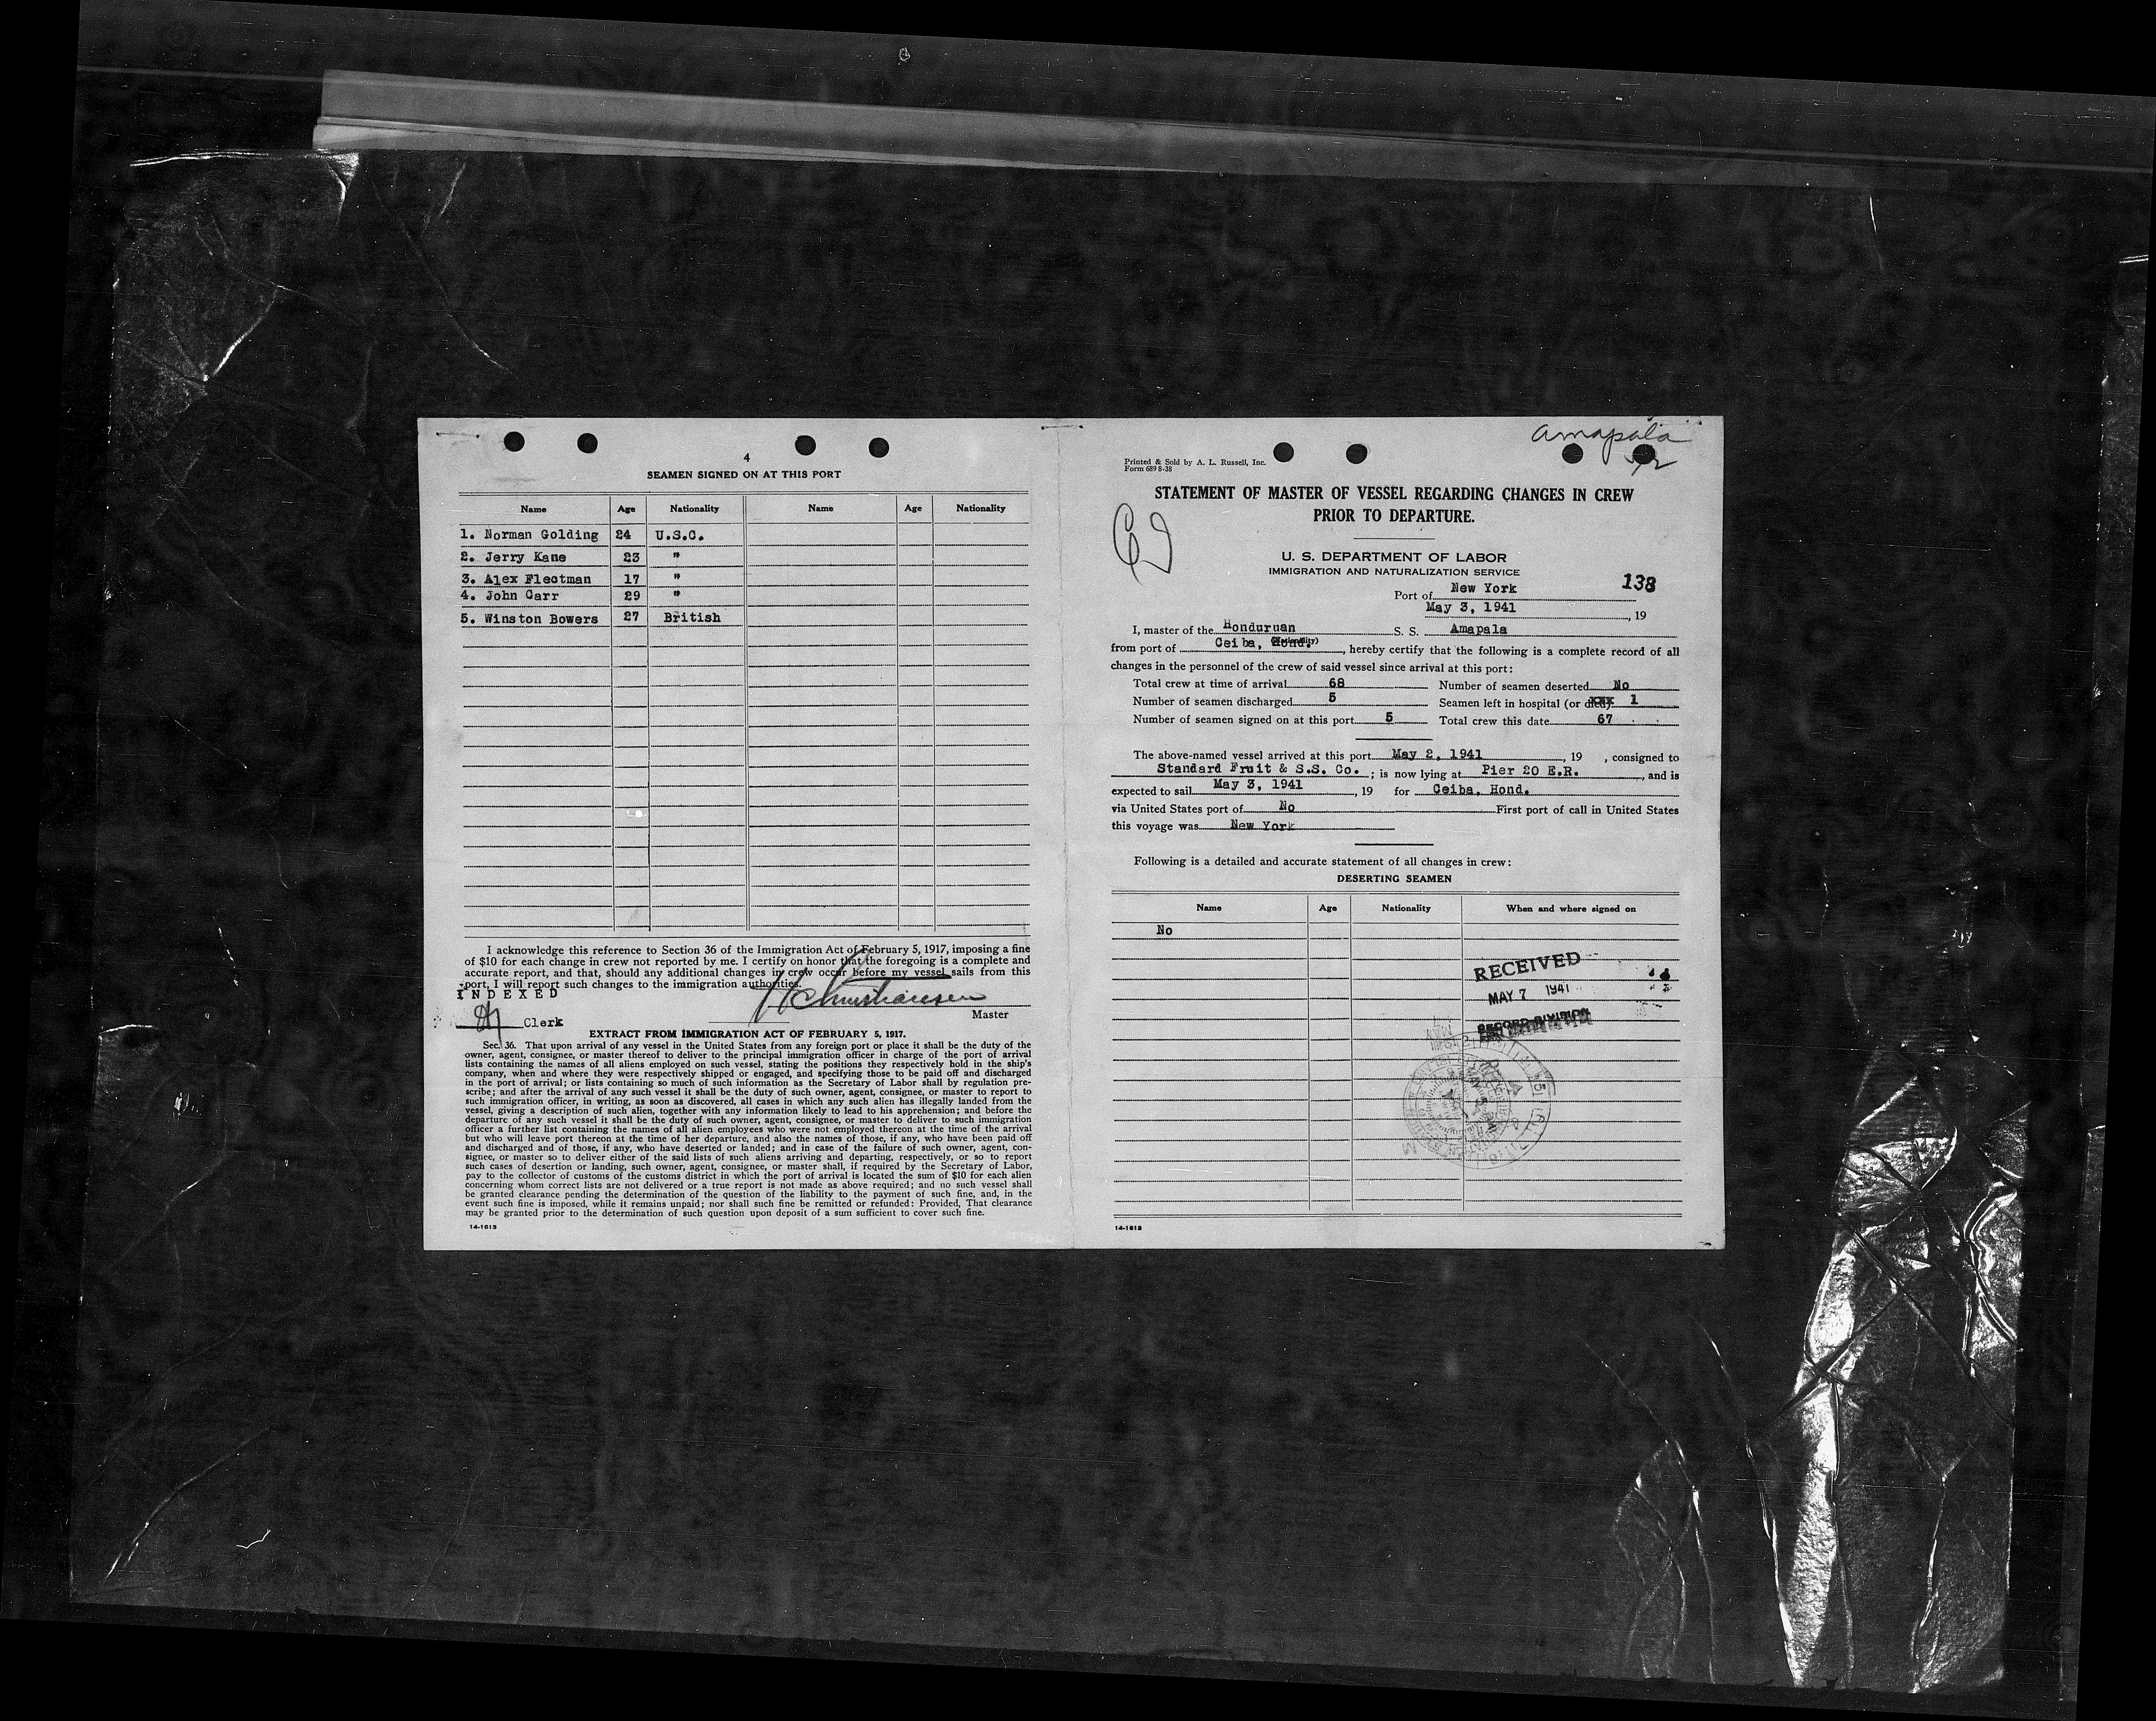 4
SEAMEN SIGNED ON AT THIS PORT
Name Age Nationality Name Age Nationality
1. Norman Golding 24 U.S.C.
2. Jerry Kane 23 "
3. Alex Flectman 17 "
4. John Carr 29 "
5. Winston Bowers 27 British
I acknowledge this reference to Section 36 of the Immigration Act of February 5, 1917, imposing a fine
of $10 for each change in crew not reported by me. I certify on honor that the foregoing is a complete and
accurate report, and that, should any additional changes in crew occur before my vessel sails from this
port, I will report such changes to the immigration authorities.
INDEXED
Clerk
H Christiansen
Master
EXTRACT FROM IMMIGRATION ACT OF FEBRUARY 5, 1917.
Sec. 36. That upon arrival of any vessel in the United States from any foreign port or place it shall be the duty of the
owner, agent, consignee, or master thereof to deliver to the principal immigration officer in charge of the port of arrival
lists containing the names of all aliens employed on such vessel, stating the positions they respectively hold in the ship's
company, when and where they were respectively shipped or engaged, and specifying those to be paid off and discharged
in the port of arrival; or lists containing so much of such information as the Secretary of Labor shall by regulation pre-
scribe; and after the arrival of any such vessel it shall be the duty of such owner, agent, consignee, or master to report to
such immigration officer, in writing, as soon as discovered, all cases in which any such alien has illegally landed from the
vessel, giving a description of such alien, together with any information likely to lead to his apprehension; and before the
departure of any such vessel it shall be the duty of such owner, agent, consignee, or master to deliver to such immigration
officer a further list containing the names of all alien employees who were not employed thereon at the time of the arrival
but who will leave port thereon at the time of her departure, and also the names of those, if any, who have been paid off
and discharged and of those, if any, who have deserted or landed; and in case of the failure of such owner, agent, con-
signee, or master so to deliver either of the said lists of such aliens arriving and departing, respectively, or so to report
such cases of desertion or landing, such owner, agent, consignee, or master shall, if required by the Secretary of Labor,
pay to the collector of customs of the customs district in which the port of arrival is located the sum of $10 for each alien
concerning whom correct lists are not delivered or a true report is not made as above required; and no such vessel shall
be granted clearance pending the determination of the question of the liability to the payment of such fine, and, in the
event such fine is imposed, while it remains unpaid; nor shall such fine be remitted or refunded: Provided, That clearance
may be granted prior to the determination of such question upon deposit of a sum sufficient to cover such fine.
14-1613
Amapala
Printed & Sold by A. L. Russell, Inc.
Form 689 8-38
STATEMENT OF MASTER OF VESSEL REGARDING CHANGES IN CREW
PRIOR TO DEPARTURE.
U. S. DEPARTMENT OF LABOR
IMMIGRATION AND NATURALIZATION SERVICE
138
Port of New York
May 3, 1941, 19
I, master of the Honduruan S. S. Amapala
(Nationality)
from port of Ceiba, Hond., hereby certify that the following is a complete record of all
changes in the personnel of the crew of said vessel since arrival at this port:
Total crew at time of arrival 68 Number of seamen deserted No
Number of seamen discharged 5 Seamen left in hospital (or died) 1
Number of seamen signed on at this port 5 Total crew this date 67
The above-named vessel arrived at this port May 2, 1941, 19 , consigned to
Standard Fruit & S.S. Co.; is now lying at Pier 20 E.R., and is
expected to sail May 3, 1941, 19 for Ceiba, Hond.
via United States port of No First port of call in United States
this voyage was New York
Following is a detailed and accurate statement of all changes in crew:
DESERTING SEAMEN
Name Age Nationality When and where signed on
No
RECEIVED
MAY 7 1941
RECORD DIVISION
14-1613